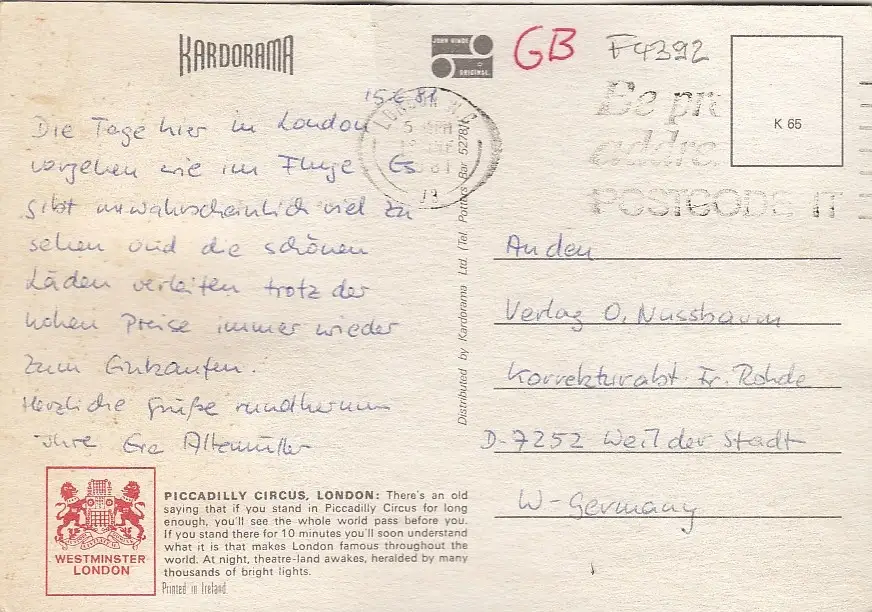 KARDORAMA
JOHN HINDE
ORIGINAL
GB
F4392
K 65
15.6.81
LONDON
Be pr
addre
POSTCODE IT
Die Tage hier in London
vergehen wie im Fluge. Es
gibt unwahrscheinlich viel zu
sehen und die schönen
Läden verleiten trotz der
hohen Preise immer wieder
zum Einkaufen.
Herzliche Grüße rundherum
Ihre Eva Altemüller
Distributed by Kardorama Ltd. (Tel. Potters Bar 52781)
An den
Verlag O. Nussbaum
Korrekturabt. Fr. Rohde
D-7252 Weil der Stadt
W-Germany
WESTMINSTER
LONDON
PICCADILLY CIRCUS, LONDON: There's an old
saying that if you stand in Piccadilly Circus for long
enough, you'll see the whole world pass before you.
If you stand there for 10 minutes you'll soon understand
what it is that makes London famous throughout the
world. At night, theatre-land awakes, heralded by many
thousands of bright lights.
Printed in Ireland